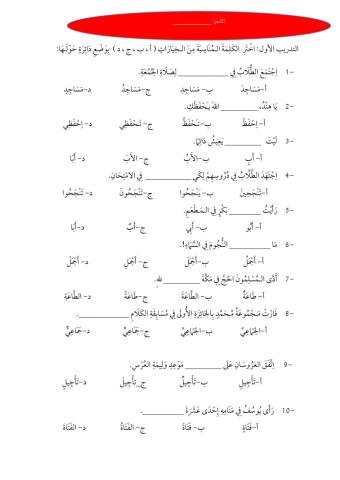 الاسم: ____________
التدريب الأول: اخْتَرِ الكَلِمَةَ الـمُنَاسِبَةَ مِنَ الـخِيَارَاتِ ( أ ، ب ، ج ، د ) بِوَضْعِ دَائِرَةٍ حَوْلَـهَا:
1- اِجْتَمَعَ الطُّلَّابُ فِي __________ لِصَلَاةِ الجُمُعَةِ.
أ-مَسَاجِدَ ب- مَسَاجِدِ ج-مَسَاجِدُ د-مَسَاجِدٍ
2- يَا هِنْدُ، ________ اللهَ يَـحْفَظْكِ.
أ- اِحْفَظْ ب-تَـحْفَظُ ج- تَـحْفَظِي د- اِحْفَظِي
3- لَيْتَ ________ يَعِيشُ دَائِمًا.
أ- أَبٍ ب-الأَبُ ج- الأَبَ د- أَبًا
4- اِجْتَهَدَ الطُّلَّابُ فِي دُرُوسِهِمْ لِكَيْ __________ فِي الامْتِحَانِ.
أ-تَنْجَحِينَ ب- يَنْجَحُوا ج-تَنْجَحُونَ د- تَنْجَحُوا
5- رَأَيْتُ ________ بَكْرٍ فِي الـمَطْعَمِ.
أ- أَبُو ب- أَبِي ج-أَبٌ د-أَبَا
6- مَا __________ النُّجُومَ فِي السَّمَاءِ!.
أ- أَجْمَلُ ب-أَجْمَلَ ج- أَجْمَلِ د- أَجْمَلْ
7- أَدَّى الـمُسْلِمُونَ الحَجَّ فِي مَكَّةَ __________ للهِ.
أ- طَاعَةً ب- الطَّاعَةَ ج-طَاعَةٌ د- الطَّاعَةِ
8- فَازَتْ مَـجْمُوعَةُ مُـحَمَّدٍ بِالجَائِزَةِ الأُولَى فِي مُسَابَقَةِ الكَلَامِ __________.
أ-الجَمَاعِيُّ ب- الجَمَاعِيِّ ج-جَمَاعِيٍّ د-جَمَاعِيٌّ
9- اِتَّفَقَ العَرُوسَانِ عَلَى ________ مَوْعِدِ وَلِيمَةِ العُرْسِ.
أ-تَأْجِيلَ ب- تَأْجِيلٌ ج_تَأْجِيلِ د-تَأْجِيلٍ
10- رَأَى يُوسُفُ فِي مَنَامِهِ إِحْدَى عَشْرَةَ __________.
أ-فَتَاةٍ ب- فَتَاةً ج- الفَتَاةُ د- الفَتَاةَ